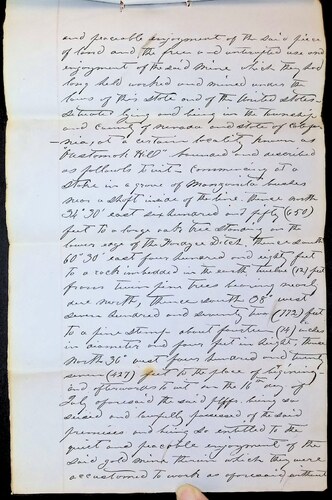 and peaceable enjoyment of the said piece
of land and the free and uninterupted use and
enjoyment of the said mine which they had
long held worked and mined under the
laws of this State and of the United States
situated lying and being in the township
and county of Nevada and state of Califor
-nia, at a certain locality known as
Hill" bounded and described
as follows to wit - commencing at a
stake in a grove of Manzanita bushes
near a shaft inside of the line thence north
24° 30' east six hundred and fifty (650)
feet to a large oak tree standing on the
lower edge of the Ditch, thence south
60° 30' east four hundred and eighty feet
to a rock imbedded in the earth twelve (12) feet
from twin pine trees bearing nearly
due north, thence south 38° west
seven hundred and seventy two (772) feet
to a pine stump about fourteen (14) inches
in diameter and four feet in hight, thence
North 36° west four hundred and twenty
seven (427) feet to the place of beginning
and afterwards to wit on the 16th day of
July aforesaid the said plffs. being so
seised and lawfully possessed of the said
premises and being so entitled to the
quiet and peaceable enjoyment of the
said gold mine therein which they were
accustomed to work as aforesaid without